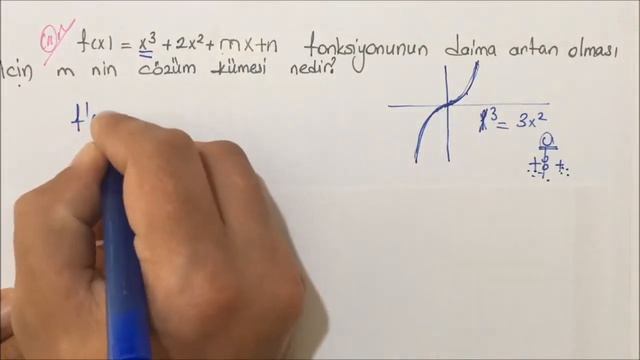 f(x) = x³ + 2x² + mx + n fonksiyonunun daima artan olması
için m nin çözüm kümesi nedir?
x³ = 3x²
+ 0 +
f'